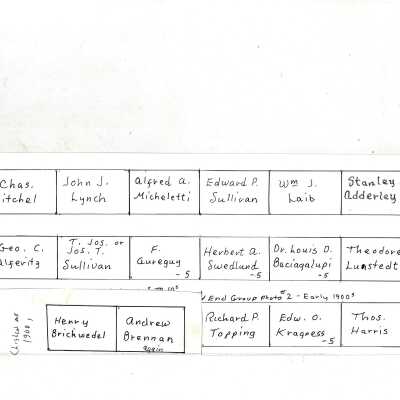 Chas.
itchel
John J.
Lynch
Alfred A.
Micheletti
Edward P.
Sullivan
Wm J.
Laib
Stanley
Adderley
Geo. C.
Alferitz
T. Jos. or
Jos. T.
Sullivan
F.
Gureguy
-5
Herbert A.
Swedlund
-5
Dr. Louis D.
Bacigalupi
-5
Theodore
Lunstedt
End Group Photo #2 - Early 1900s
Henry
Brichwedel
Andrew
Brennan
again
Richard P.
Topping
Edw. O.
Kragness
-5
Thos.
Harris